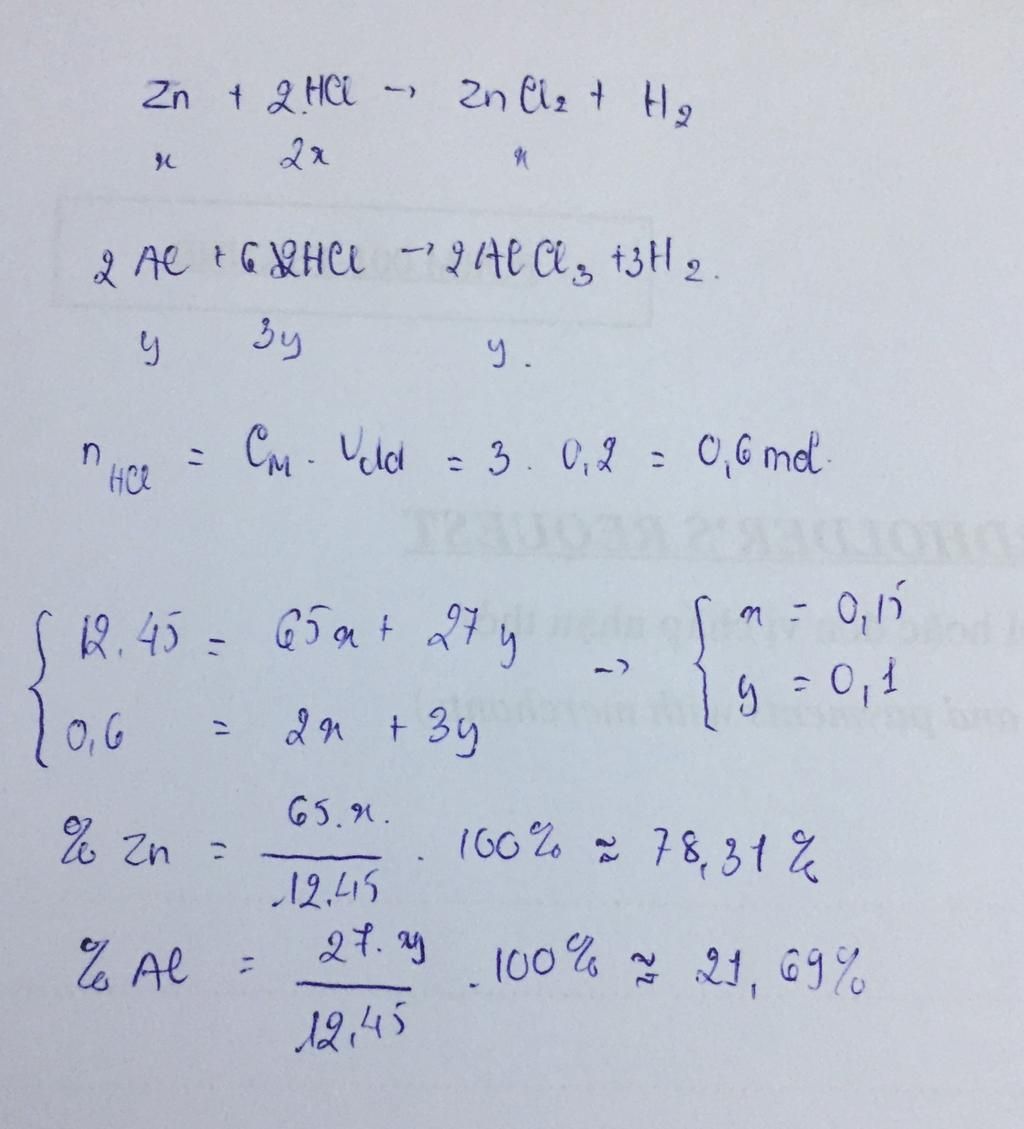 Zn + 2HCl → ZnCl₂ + H₂
x 2x x
2Al + 6HCl → 2AlCl₃ + 3H₂.
y 3y y.
n HCl = C_M . Vdd = 3 . 0,2 = 0,6 mol.
{ 12.45 = 65x + 27y → { x = 0,15
0,6 = 2x + 3y y = 0,1
% Zn = 65.x. / 12.45 . 100% ≈ 78,31 %
% Al = 27.y / 12,45 . 100% ≈ 21,69%